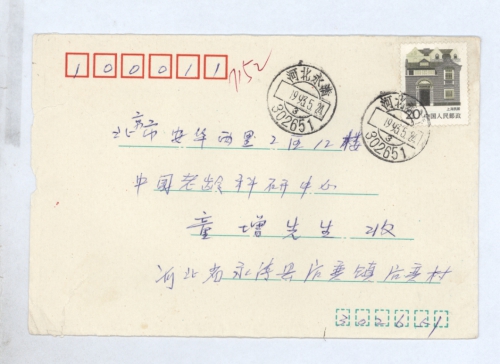 100011
7152
河北永清
1993.5.28
302651
上海民居
20分
中国人民邮政
河北永清
1993.5.28
302651
北京市安华西里2区12楼
中国老龄科研中心
童增先生 收
河北省永清县后奕镇后奕村
302651